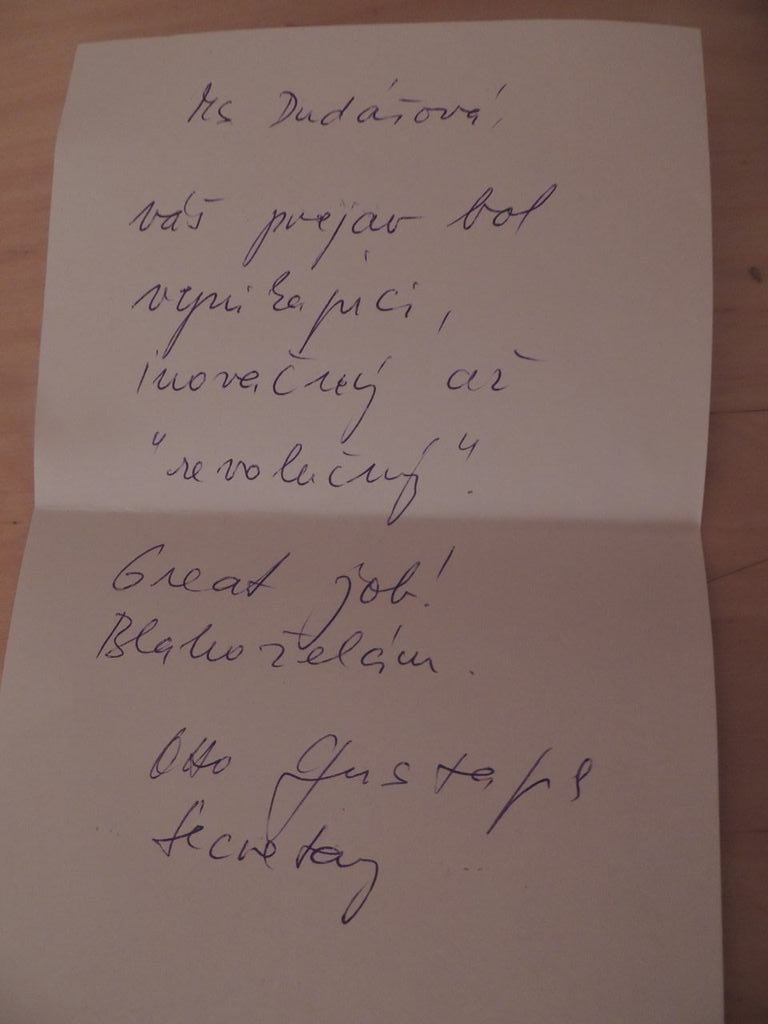 Ms Dudášová,
váš prejav bol
vynikajúci,
inovačný až
"revolučný".
Great job!
Blahoželám.
Otto
Secretary